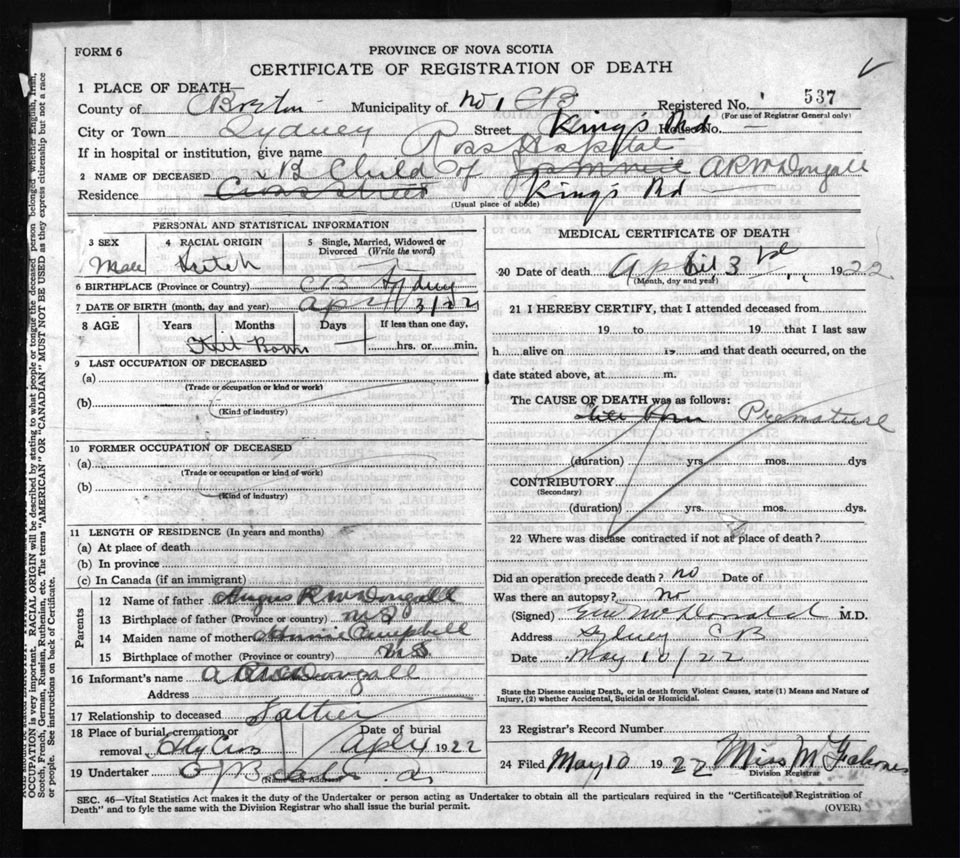 FORM 6
PROVINCE OF NOVA SCOTIA
CERTIFICATE OF REGISTRATION OF DEATH
1 PLACE OF DEATH—
County of C Breton Municipality of No 1 CB Registered No. 537
(For use of Registrar General only)
City or Town Sydney Street King's Rd House No. —
If in hospital or institution, give name Ross Hospital
2 NAME OF DECEASED Child of A R McDougall
Residence Cross Street King's Rd
(Usual place of abode)
PERSONAL AND STATISTICAL INFORMATION
3 SEX 4 RACIAL ORIGIN 5 Single, Married, Widowed or Divorced (Write the word)
Male
6 BIRTHPLACE (Province or Country) CB Sydney
7 DATE OF BIRTH (month, day and year) Apr 3/22
8 AGE Years Months Days If less than one day,
Still Born — hrs. or min.
9 LAST OCCUPATION OF DECEASED
(a)
(Trade or occupation or kind or work)
(b)
(Kind of industry)
10 FORMER OCCUPATION OF DECEASED
(a)
(Trade or occupation or kind of work)
(b)
(Kind of industry)
11 LENGTH OF RESIDENCE (In years and months)
(a) At place of death
(b) In province
(c) In Canada (if an immigrant)
Parents
12 Name of father Angus R McDougall
13 Birthplace of father (Province or country) NS
14 Maiden name of mother Annie Campbell
15 Birthplace of mother (Province or country) NS
16 Informant's name A R McDougall
Address
17 Relationship to deceased Father
18 Place of burial, cremation or removal Holy Cross Date of burial Apl 4 1922
19 Undertaker
(Name and Address)
MEDICAL CERTIFICATE OF DEATH
20 Date of death April 3rd 1922
(Month, day and year)
21 I HEREBY CERTIFY, that I attended deceased from
19 to 19 that I last saw
h alive on 19 and that death occurred, on the
date stated above, at m.
The CAUSE OF DEATH was as follows:
Still Born Premature
(duration) yrs. mos. dys
CONTRIBUTORY
(Secondary)
(duration) yrs. mos. dys.
22 Where was disease contracted if not at place of death?
Did an operation precede death? no Date of
Was there an autopsy? no
(Signed) McDonald M.D.
Address Sydney CB
Date May 10/22
State the Disease causing Death, or in death from Violent Causes, state (1) Means and Nature of
Injury, (2) whether Accidental, Suicidal or Homicidal.
23 Registrar's Record Number
24 Filed May 10 1922 Miss M
Division Registrar
SEC. 46—Vital Statistics Act makes it the duty of the Undertaker or person acting as Undertaker to obtain all the particulars required in the "Certificate of Registration of
Death" and to fyle the same with the Division Registrar who shall issue the burial permit.
(OVER)
OCCUPATION is very important. RACIAL ORIGIN will be described by stating to what people or tongue the deceased person belonged whether English, Irish,
Scotch, French, German, Russian, Ruthenian, etc. The terms "AMERICAN" OR "CANADIAN" MUST NOT BE USED as they express citizenship but not a race
or people. See instructions on back of Certificate.